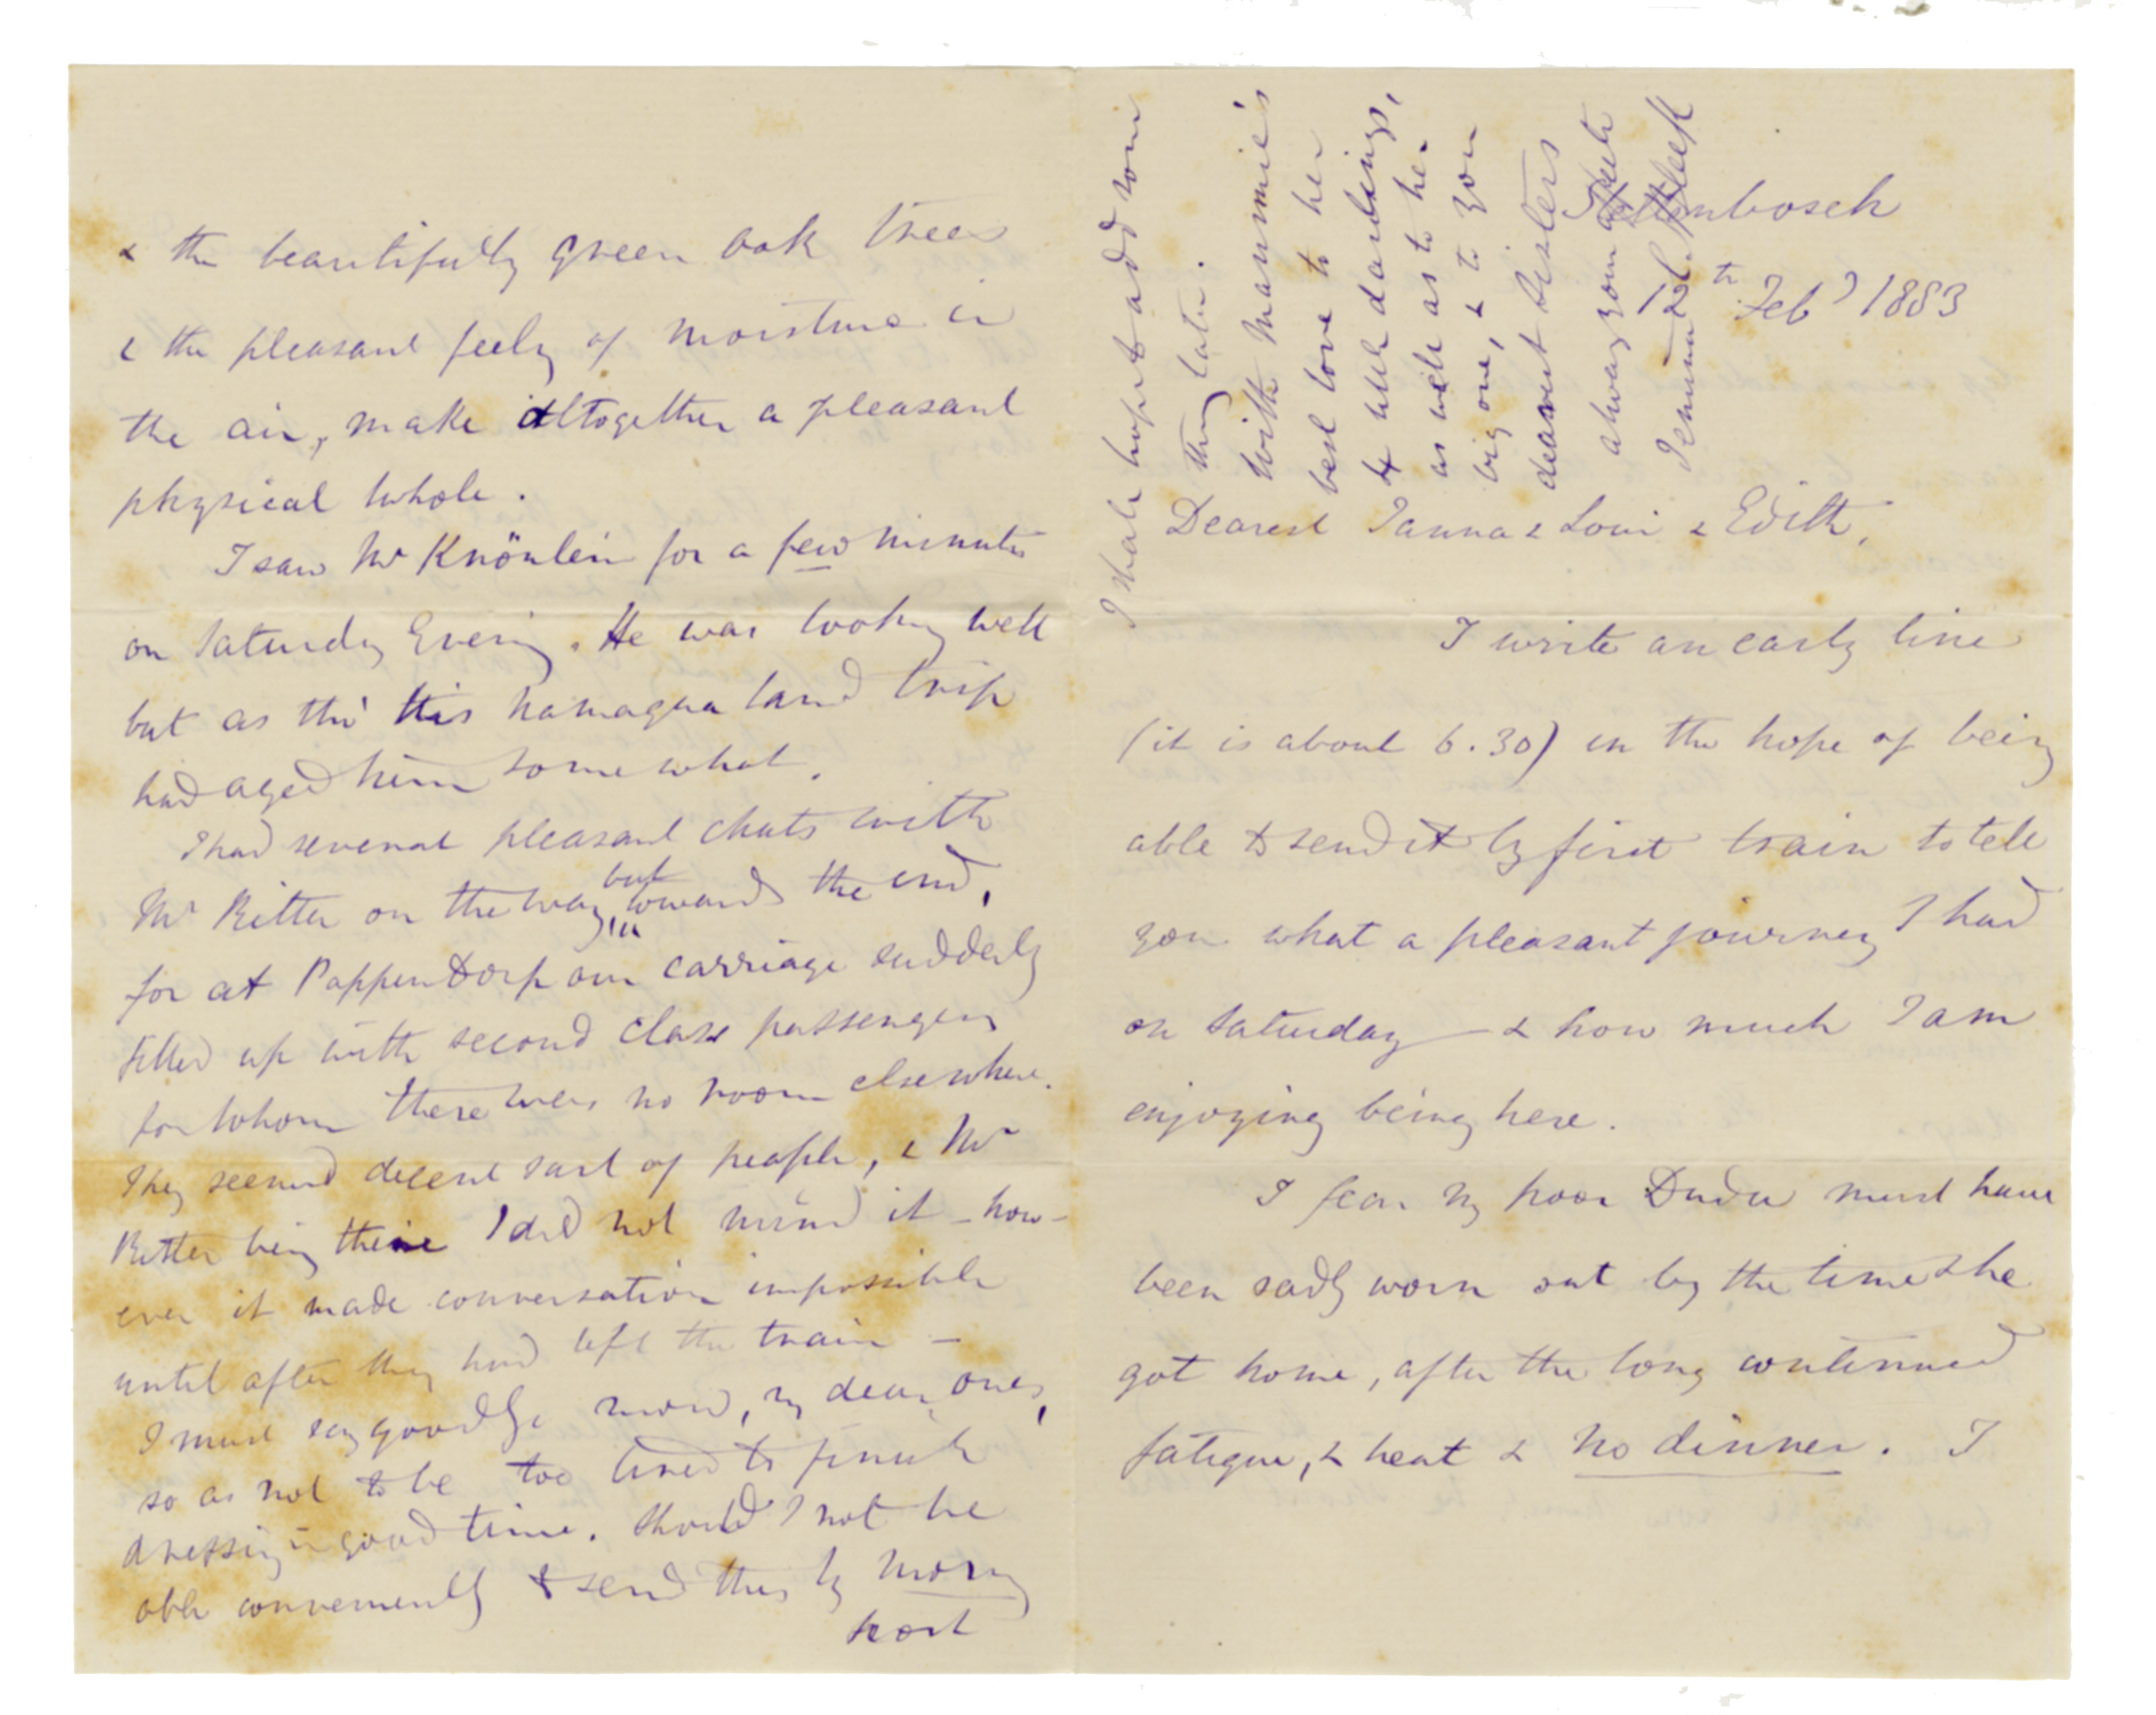 Stellenbosch
12th Feby 1883
Dearest Janna & Loui & Edith,
I write an early line
(it is about 6.30) in the hope of being
able to send it by first train to tell
you what a pleasant journey I had
on Saturday — & how much I am
enjoying being here.
I fear my poor Dudu must have
been sadly worn out by the time she
got home, after the long continued
fatigue, & heat & no dinner. I
& the beautifully green oak trees
& the pleasant feelg of moisture in
the air, make altogether a pleasant
physical whole.
I saw Mr Knönlein for a few minutes
on Saturday Evening. He was looking well
but as tho' this Namaqua land trip
had aged him somewhat.
I had several pleasant chats with
Mr Ritter on the way, but towards the end,
for at Pappendorp our carriage suddenly
filled up with second class passengers
for whom there was no room elsewhere.
They seemed decent sort of people, & Mr
Ritter being there I did not mind it – how-
ever it made conversation impossible
until after they had left the train –
I must say goodbye now, my dear ones,
so as not to be too tired to finish
dressing in good time. Should I not be
able conveniently to send this by morng
post
I shall hope to add some
thing later.
With Mammie's
best love to her
4 little darlings,
as well as to her
big one, & to you
dearest sisters
always your affecte
Jemima C. Bleek